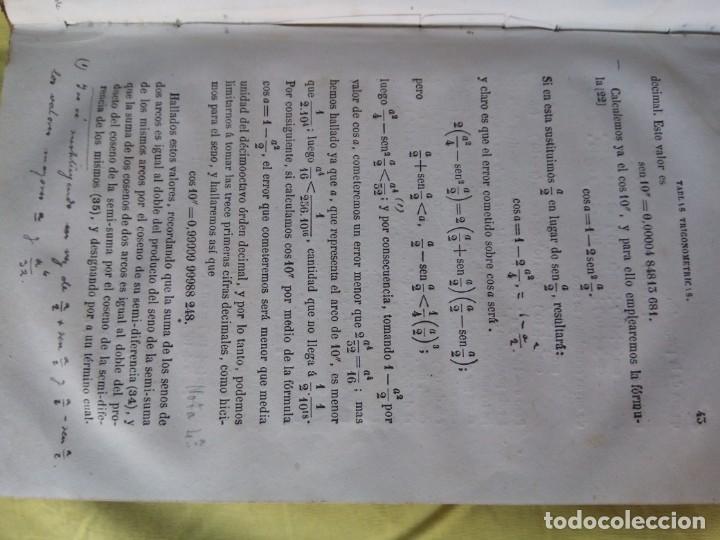 TABLAS TRIGONOMÉTRICAS. 45
decimal. Esto valor es
sen 10″=0,00004 84813 681.
— Calculemos ya el cos 10″, y para ello emplearemos la fórmu-
la (22)
cos a=1−2sen² a/2.
Si en esta sustituimos a/2 en lugar de sen a/2, resultará:
cos a=1−2 a²/4, = 1 − a²/2.
y claro es que el error cometido sobre cos a será.
2(a²/4−sen² a/2)=2(a/2+sen a/2)(a/2−sen a/2);
pero
a/2+sen a/2<a, a/2−sen a/2<1/4(a/2)³;
luego a²/4−sen² a/2<a⁴/32; (1) y por consecuencia, tomando 1−a²/2 por
valor de cos a, cometeremos un error menor que 2 a⁴/32=a⁴/16; mas
hemos hallado ya que a, que representa el arco de 10″, es menor
que 1/2.10⁴; luego a⁴/16<1/256.10¹⁶, cantidad que no llega á 1/2·1/10¹⁸.
Por consiguiente, si calculamos cos 10″ por medio de la fórmula
cos a=1−a²/2, el error que cometeremos será menor que media
unidad del décimooctavo órden decimal, y por lo tanto, podemos
limitarnos á tomar las trece primeras cifras decimales, como hici-
mos para el seno, y hallaremos así que
cos 10″=0,99999 99988 248.
Nota 4ª
Hallados estos valores, recordando que la suma de los senos de
dos arcos es igual al doble del producto del seno de la semi-suma
de los mismos arcos por el coseno de su semi-diferencia (34), y
que la suma de los cosenos de dos arcos es igual al doble del pro-
ducto del coseno de la semi-suma por el coseno de la semi-dife-
rencia de los mismos (35), y designando por a un término cual-
(1) Pues sustituyendo en vez de a/2 + sen a/2 y a/2 − sen a/2
los valores mayores a y a⁴/32
todocoleccion